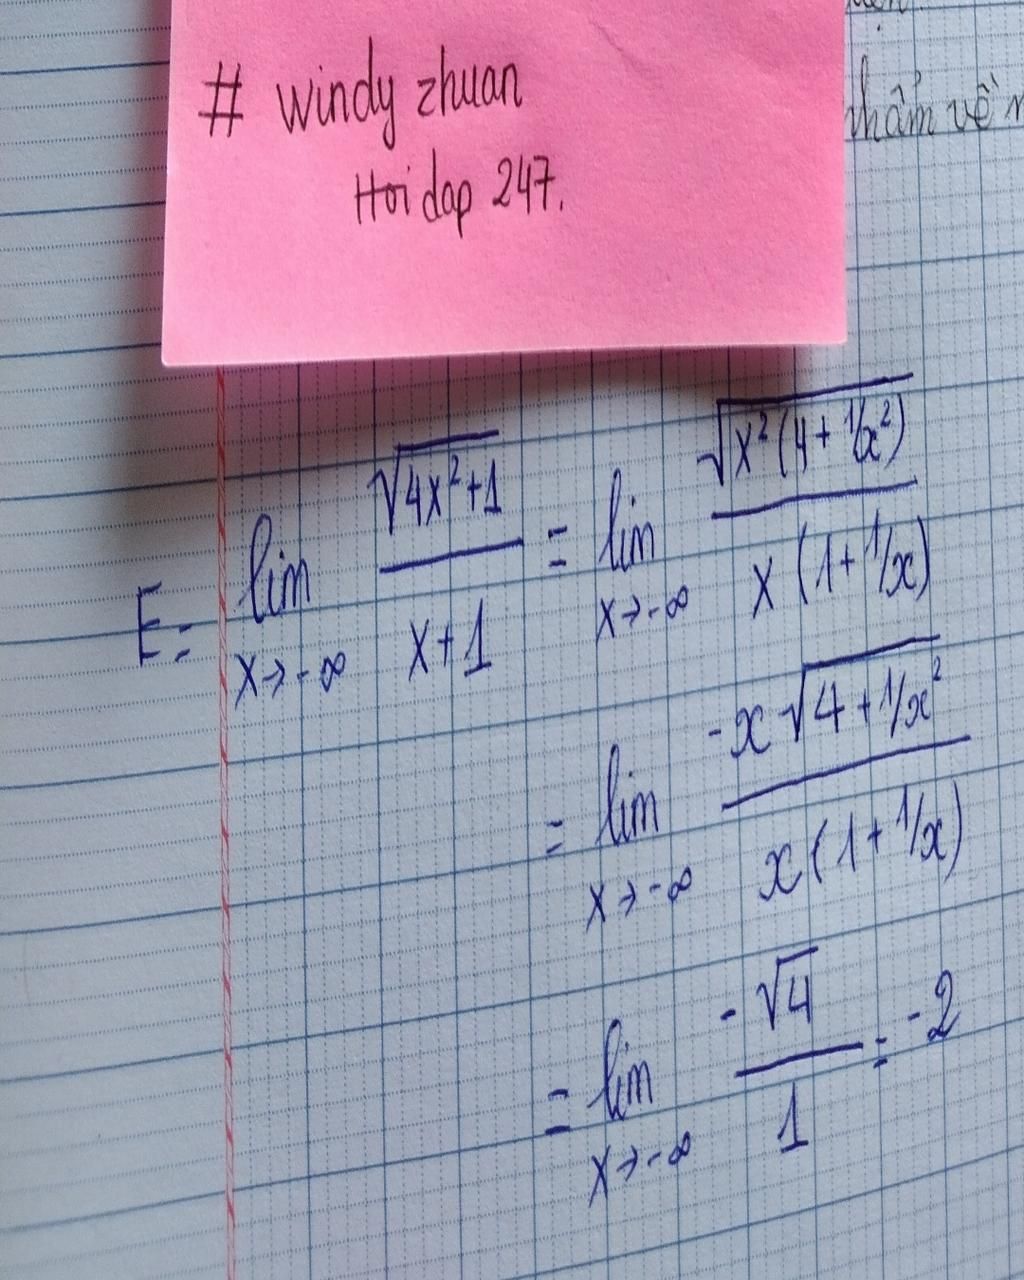 # windy zhuan
Hoi dap 247.
nhầm về
E = lim x→-∞ √(4x²+1) / (x+1) = lim x→-∞ √(x²(4+1/x²)) / (x(1+1/x))
= lim x→-∞ -x√(4+1/x²) / (x(1+1/x))
= lim x→-∞ -√4 / 1 = -2